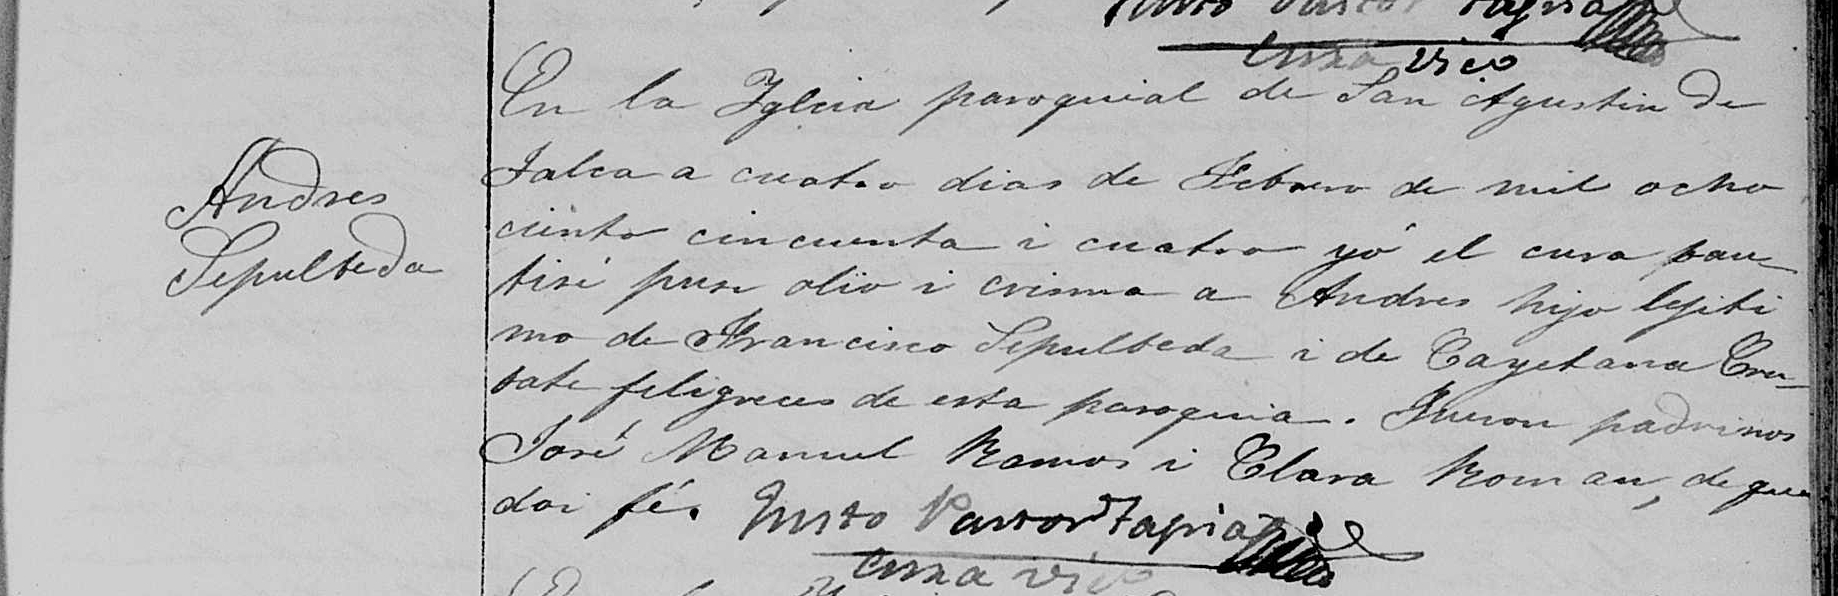 Justo Pastor Tapia
Cura Vico
En la Iglecia paroquial de San Agustin de
Talca a cuatro dias de Febrero de mil ocho
Andres
ciento cincuenta i cuatro yó el cura bau-
Sepulbeda
tisé puse olio i crisma a Andres hijo lejiti
mo de Francisco Sepulbeda i de Cayetana
feligreces de esta paroquia. Fueron padrinos
José Manuel Ramos i Clara Roman, de que
doi fé. Justo Pastor Tapia
Cura Vico